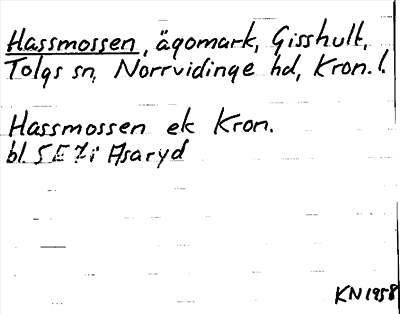 Hassmossen, ägomark, Gisshult,
Tolgs sn, Norrvidinge hd, Kron. l.
Hassmossen ek Kron.
bl. 5E7i Asaryd
KN 1958